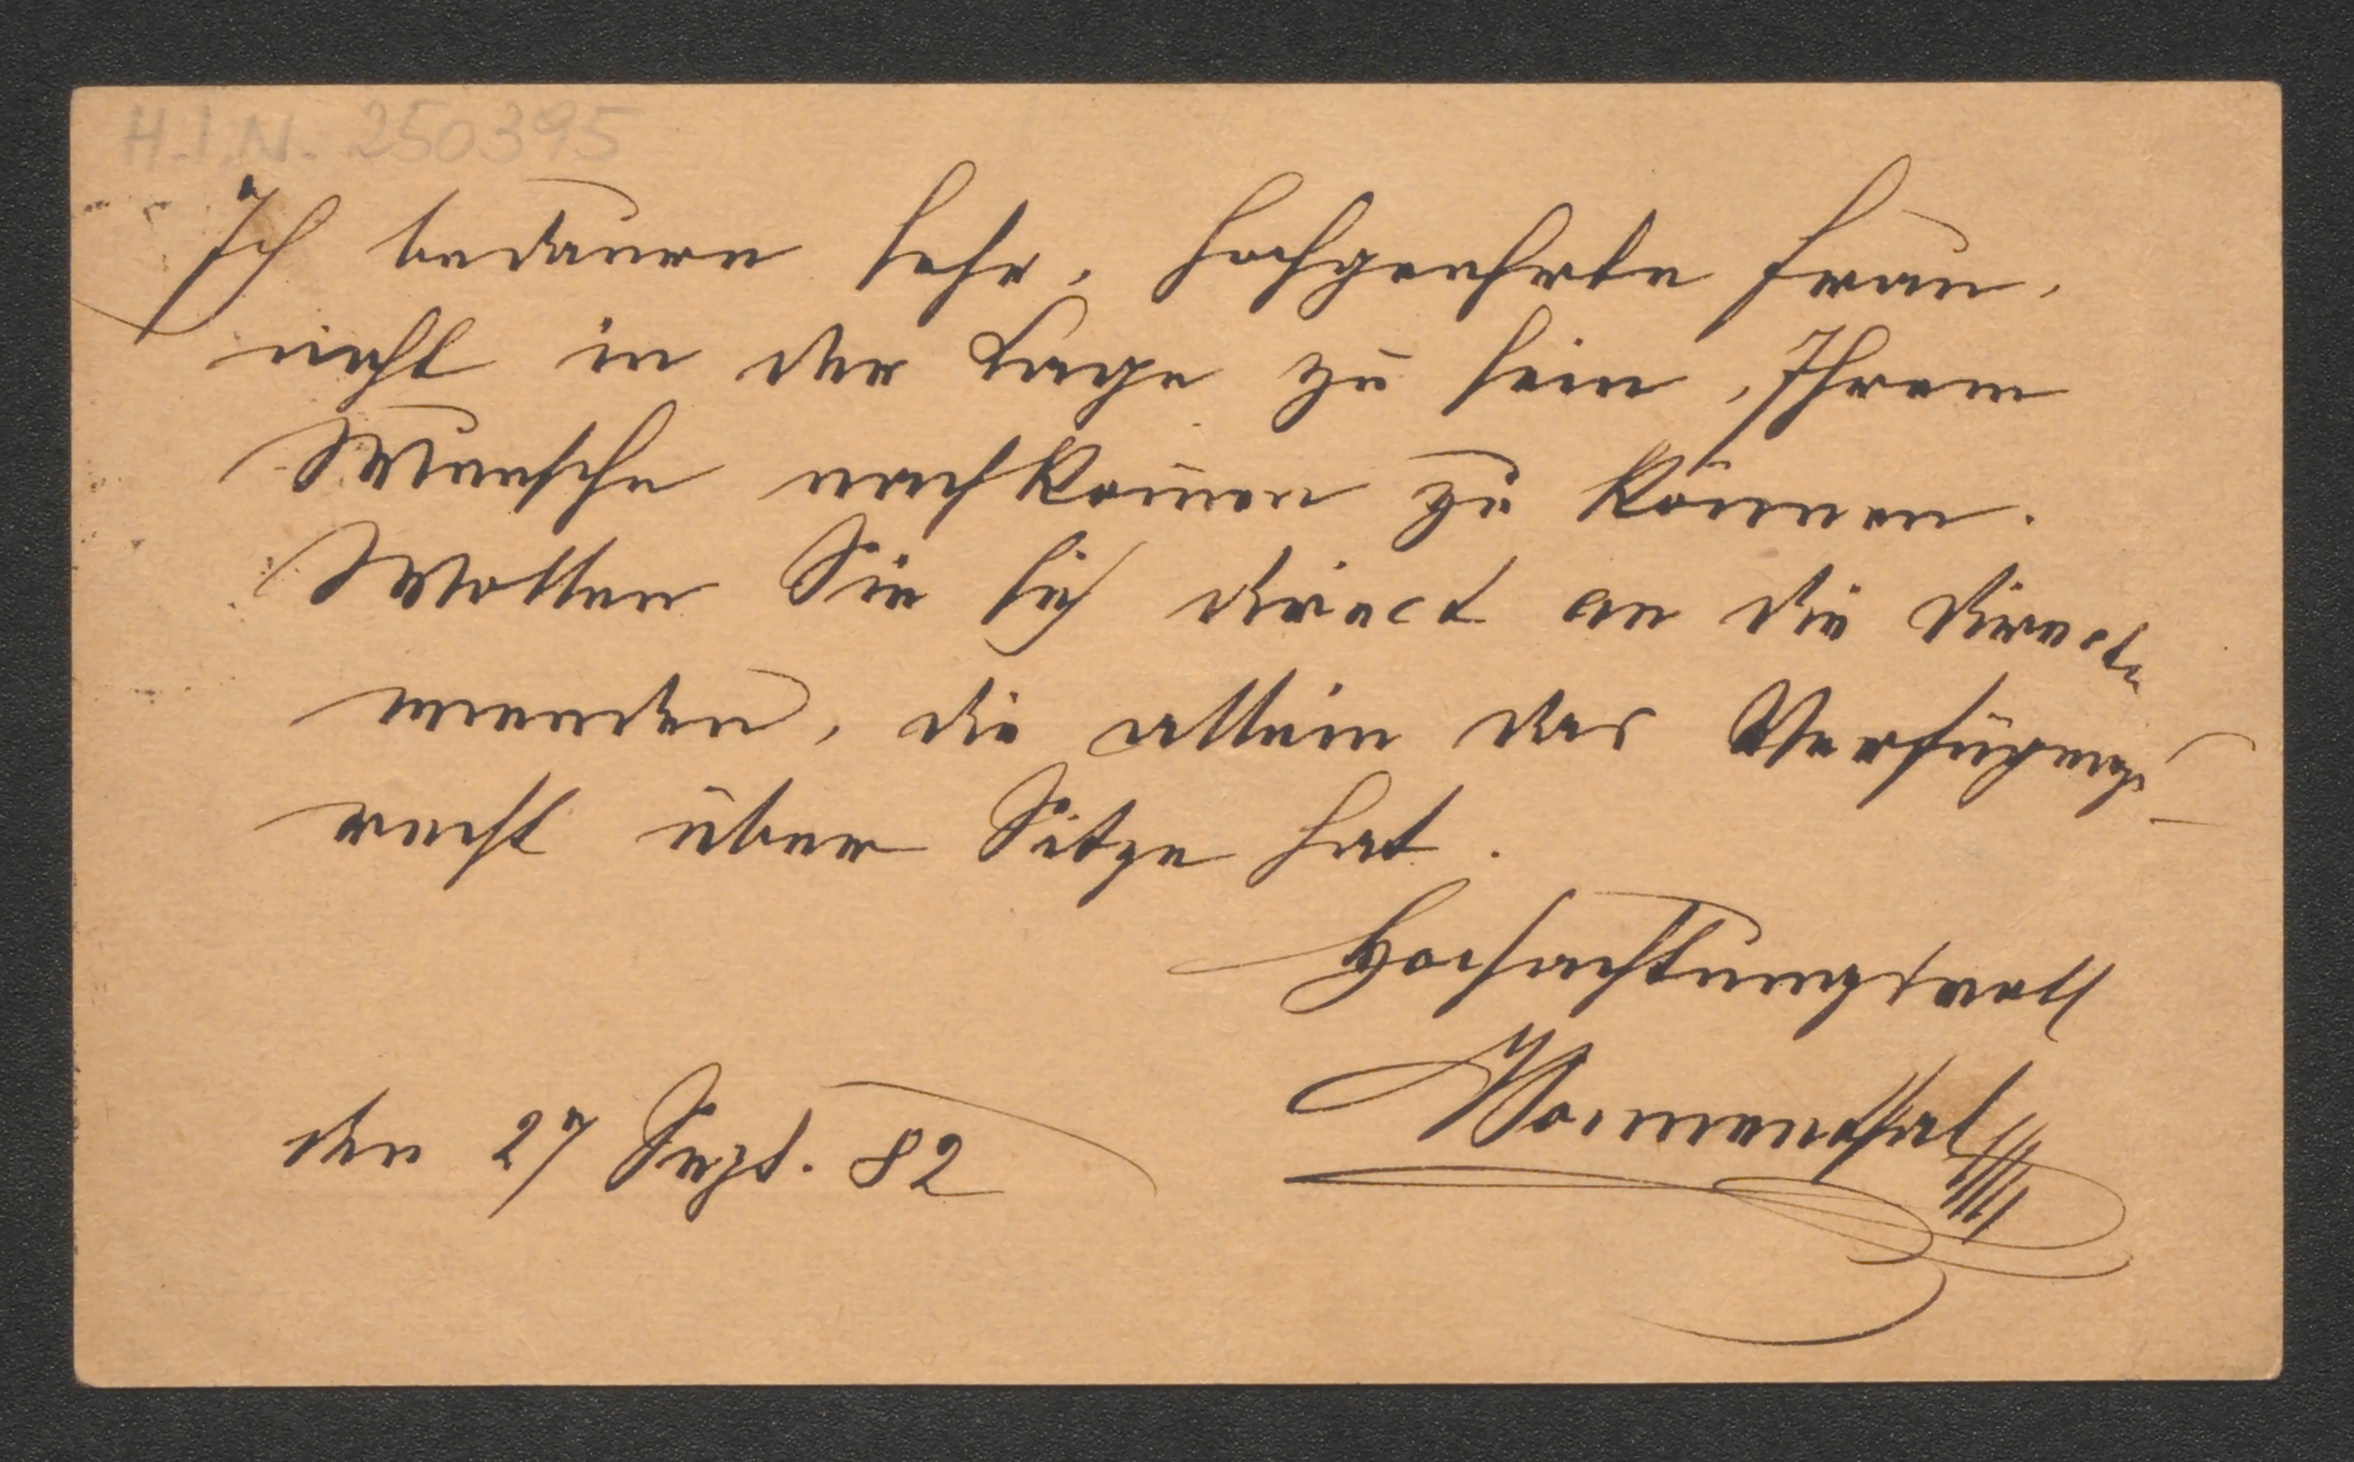 H.I.N. 250395
Ich bedauere sehr, hochgeehrte Frau,
nicht in der Lage zu sein, Ihrem
Wunsche nachkom̅en zu können.
Wollen Sie sich direct an die Direct.
wenden, die allein das Verfügungs-
recht über Sitze hat.
Hochachtungsvoll
den 27 Sept. 82